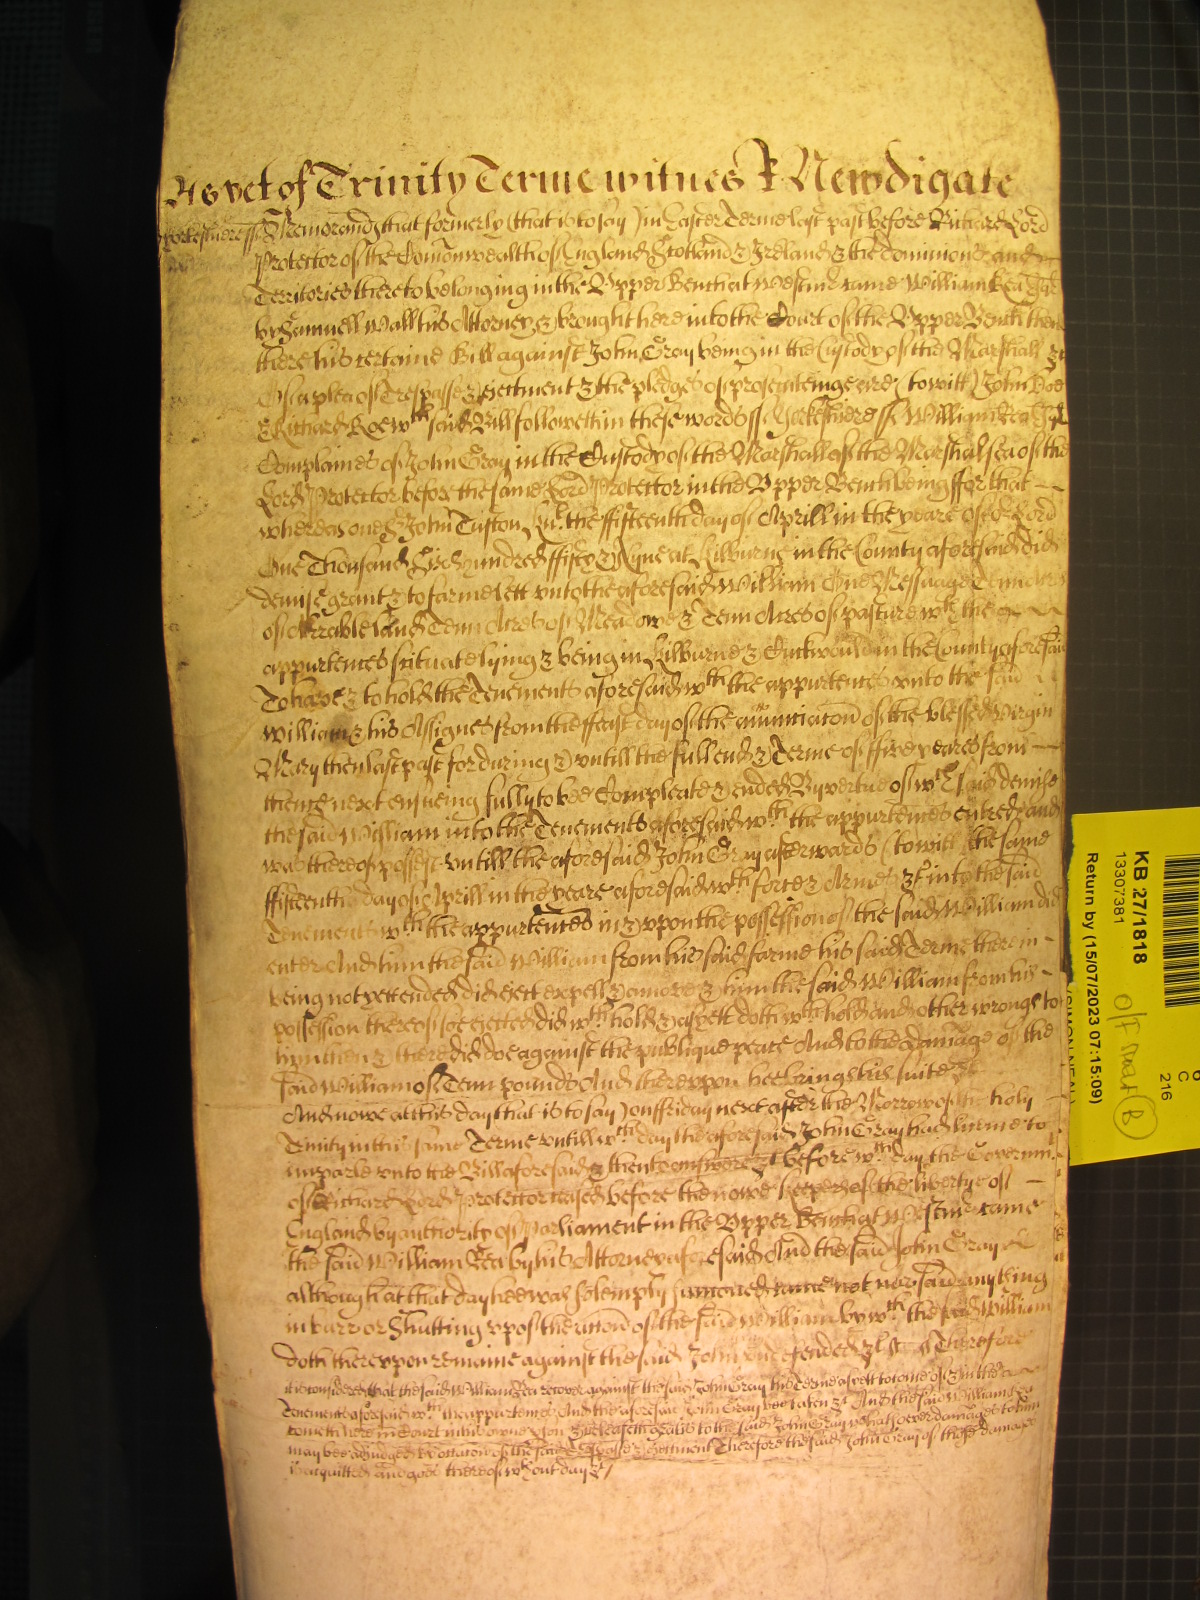 As yet of Trinity Terme witnes R Newdigate
Yorkeshiere ss Memorand that formerly (that is to say) in Easter Terme last past before Richard Lord
Protector of the Comonwealth of England Scotland & Ireland & the dominions and
Territories thereto belonging in the Upper Bench at Westmr came William Rea
by Samuell Wall his Attorney & brought here into the Court of the Upper Bench then
there his certaine Bill against John Gray being in the Custody of the Marshall &c
Of a plea of Trespasse & Ejectment & the pledges of prosecuteinge are (to witt) John Doe
& Richard Roe wch said Bill followeth in these words ss Yorkeshiere ss William Rea
Complaines of John Gray in the Custody of the Marshall of the Marshalsea of the
Lord Protector before the same Lord Protector in the Upper Bench being ffor that
whereas one John Tufton the ffifteenth day of Aprill in the yeare of or Lord
One Thousand Six hundred ffifty & Nyne at Kilburne in the County aforesaid did
demise grant & to farme lett unto the aforesaid William One Messuage Tenn Acres
of Arrable land Tenn Acres of Meadowe & Tenn Acres of pasture wth the
appurtences scituate lying & being in Kilburne & Cuckwould in the County aforesaid
To have & to hold the Tenements aforesaid wth the appurtences unto the said
William & his Assignes from the ffeast day of the annunciacon of the blessed Virgin
Mary then last past for during & untill the full end & Terme of ffive yeares from
thence next ensueing fully to bee Compleate & ended By vertue of wch said demise
the said William into the Tenements aforesaid wth the appurtences entred and
was thereof possest untill the aforesaid John Gray afterwards (to witt) the same
ffifteenth day of Aprill in the yeare aforesaid wth force & Armes &c into the said
Tenements wth the appurtences in & upon the possession of the said William did
enter And him the said William from his said farme his said Terme therein
being not yett ended did eject expell & amove & him the said William from his
possession thereof soe ejected did wth hold & as yett doth wth hold and other wrongs to
him then & there did doe against the publique peace And to the damage of the
said William of Tenn pounds And thereupon hee brings his suite &c
And nowe att this day that is to say on ffriday next after the Morrow of the holy
Trinity in this same Terme untill wch day the aforesaid John Gray had lycence to
imparle unto the Bill aforesaid & then to answere &c before wch day the Governmt
of Richard Lord Protector ceased before the nowe keepers of the libertye of
England by authority of Parliament in the Upper Bench at Westmr came
the said William Rea by his Attorney aforesaid And the said John Gray
although at that day hee was solemply sumoned came not nor said any thing
in barr or Shutting up of the accon of the said William by wch the said William
doth thereupon remaine against the said John undefended &c Therefore
it is considered that the said William Rea recover against the said John Gray his Terme as yett to come of & in the
Tenements aforesaid wth the appurtences And the aforesaid John Gray bee taken &c And the said William Rea
cometh here in Court in his owne & releaseth gratis to the said John Gray whatsoever damages to him
may bee adjudged by occation of the said Trespasse & Ejectment Therefore the said John Gray of those damages
is acquitted and goes thereof wthout day &c
KB 27/1818
13307381
Return by (15/07/2023 07:15:09)
(SIMON NEAL)
C
216
B